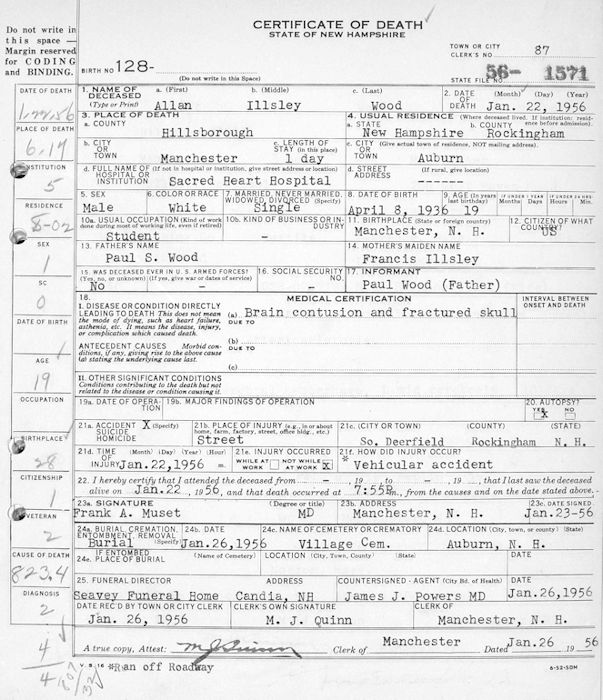 CERTIFICATE OF DEATH
STATE OF NEW HAMPSHIRE
Do not write in this space — Margin reserved for CODING and BINDING.
TOWN OR CITY CLERK'S NO. 87
BIRTH NO 128-
(Do not write in this Space)
STATE FILE NO. 56- 1571
DATE OF DEATH
1-22-56
PLACE OF DEATH
6.19
INSTITUTION
5
RESIDENCE
8-02
SEX
1
SC
0
DATE OF BIRTH
AGE
19
OCCUPATION
BIRTHPLACE
28
CITIZENSHIP
1
VETERAN
2
CAUSE OF DEATH
823.4
DIAGNOSIS
2
4
4
1. NAME OF DECEASED (Type or Print) a. (First) b. (Middle) c. (Last)
Allan Illsley Wood
2. DATE OF DEATH (Month) (Day) (Year)
Jan. 22, 1956
3. PLACE OF DEATH
a. COUNTY
Hillsborough
4. USUAL RESIDENCE (Where deceased lived. If institution: residence before admission).
a. STATE b. COUNTY
New Hampshire Rockingham
b. CITY OR TOWN
Manchester
c. LENGTH OF STAY (in this place)
1 day
c. CITY OR TOWN (Give actual town of residence, NOT mailing address).
Auburn
d. FULL NAME OF HOSPITAL OR INSTITUTION (If not in hospital or institution, give street address or location)
Sacred Heart Hospital
d. STREET ADDRESS (If rural, give location)
5. SEX
Male
6. COLOR OR RACE
White
7. MARRIED, NEVER MARRIED, WIDOWED, DIVORCED (Specify)
Single
8. DATE OF BIRTH
April 8, 1936
9. AGE (In years last birthday) IF UNDER 1 YEAR Months Days IF UNDER 24 HRS. Hours Min.
19
10a. USUAL OCCUPATION (Kind of work done during most of working life, even if retired)
Student
10b. KIND OF BUSINESS OR INDUSTRY
-
11. BIRTHPLACE (State or foreign country)
Manchester, N. H.
12. CITIZEN OF WHAT COUNTRY?
US
13. FATHER'S NAME
Paul S. Wood
14. MOTHER'S MAIDEN NAME
Francis Illsley
15. WAS DECEASED EVER IN U.S. ARMED FORCES?
(Yes, no, or unknown) (If yes, give war or dates of service)
No -
16. SOCIAL SECURITY NO.
-
17. INFORMANT
Paul Wood (Father)
18. MEDICAL CERTIFICATION
INTERVAL BETWEEN ONSET AND DEATH
I. DISEASE OR CONDITION DIRECTLY LEADING TO DEATH This does not mean the mode of dying, such as heart failure, asthenia, etc. It means the disease, injury, or complication which caused death.
(a) Brain contusion and fractured skull
DUE TO
ANTECEDENT CAUSES Morbid conditions, if any, giving rise to the above cause (a) stating the underlying cause last.
(b)
DUE TO
(c)
II. OTHER SIGNIFICANT CONDITIONS
Conditions contributing to the death but not related to the disease or condition causing it.
19a. DATE OF OPERATION
19b. MAJOR FINDINGS OF OPERATION
20. AUTOPSY?
YES X NO
21a. ACCIDENT X (Specify)
SUICIDE
HOMICIDE
21b. PLACE OF INJURY (e.g., in or about home, farm, factory, street, office bldg., etc.)
Street
21c. (CITY OR TOWN) (COUNTY) (STATE)
So. Deerfield Rockingham N. H.
21d. TIME OF INJURY (Month) (Day) (Year) (Hour)
Jan.22,1956 m.
21e. INJURY OCCURRED
WHILE AT WORK NOT WHILE AT WORK X
21f. HOW DID INJURY OCCUR?
* Vehicular accident
22. I hereby certify that I attended the deceased from - , 19 - to - , 19 , that I last saw the deceased
alive on Jan.22, 1956, and that death occurred at 7:55Pm., from the causes and on the date stated above.
23a. SIGNATURE (Degree or title)
Frank A. Muset MD
23b. ADDRESS
Manchester, N. H.
23c. DATE SIGNED
Jan.23-56
24a. BURIAL, CREMATION, ENTOMBMENT, REMOVAL (Specify)
Burial
24b. DATE
Jan.26,1956
24c. NAME OF CEMETERY OR CREMATORY
Village Cem.
24d. LOCATION (City, town, or county) (State)
Auburn, N. H.
IF ENTOMBED
24e. PLACE OF BURIAL (Name of Cemetery) LOCATION (City, Town, County) (State) DATE
25. FUNERAL DIRECTOR ADDRESS
Seavey Funeral Home Candia, NH
COUNTERSIGNED - AGENT (City Bd. of Health) DATE
James J. Powers MD Jan.26,1956
DATE REC'D BY TOWN OR CITY CLERK
Jan. 26, 1956
CLERK'S OWN SIGNATURE
M. J. Quinn
CLERK OF
Manchester, N. H.
A true copy, Attest: M J Quinn Clerk of Manchester Dated Jan.26 1956
V. S. 16 *Ran off Roadway
6-52-5DM